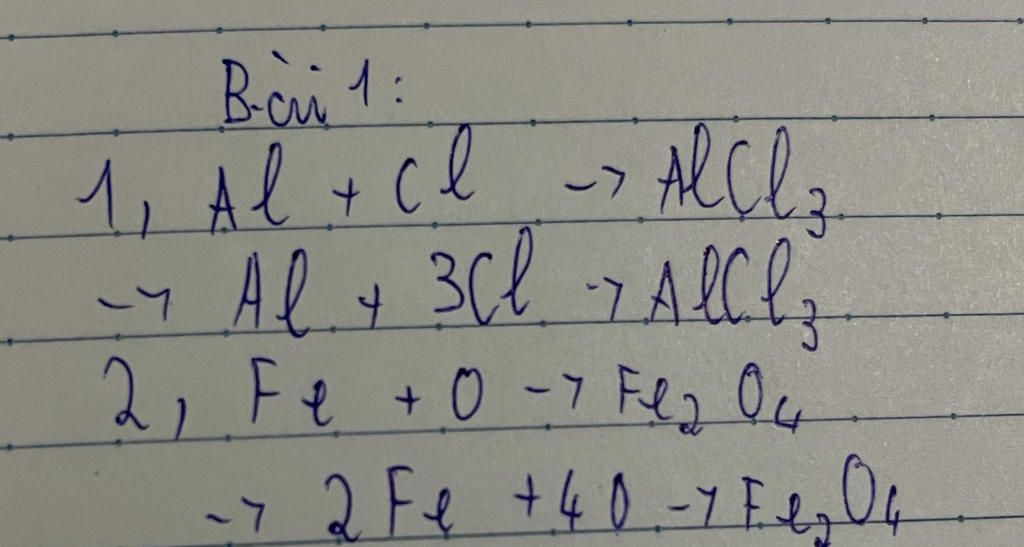 Bài 1:
1, Al + Cl → AlCl₃
→ Al + 3Cl → AlCl₃
2, Fe + O → Fe₂O₄
→ 2Fe + 4O → Fe₂O₄